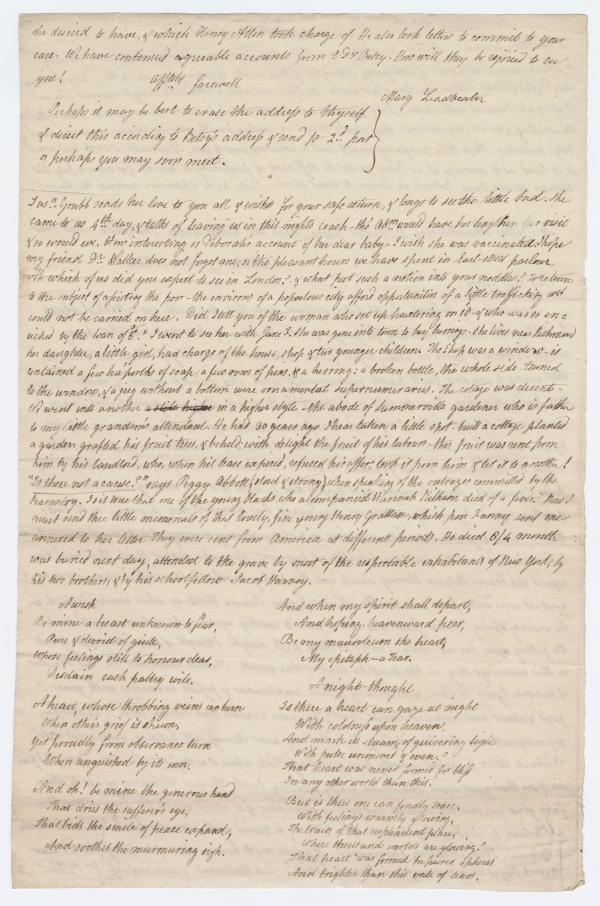 he desired to have, & which Henry Allen took charge of. He also took letters to commit to your
care. We have continued agreeable accounts from Betsy. How will they be rejoiced to see
you! farewell
Mary Leadbeater
Perhaps it may be best to erase the address to thyself
& direct this according to Betsy's address & send pr 2d post
or perhaps you may soon meet.
Susna Grubb sends her love to you all, & wishes for your safe return, & longs to see the little bud. She
came to us 4th day, & talks of leaving us in this night's coach - tho' would have her lengthen her visit
& so would we. How interesting is Deborah's account of her dear baby - I wish she was vaccinated. I hope
my friend Dr. Walker does not forget me, or the pleasant hours we have spent in East-street parlour.
which of us did you expect to see in London? - & what put such a notion into your noddles? To return
to the subject of assisting the poor - the environs of a populous city afford opportunities of a little trafficking
could not be carried on here. Did I tell you of the woman who set up huxtering on 10 - & who was so en-
riched by the loan of I went to see her with Jane S. She was gone into town to buy herrings - she lives near Richmond
her daughter, a little girl, had charge of the house, shop & two younger children. The shop was a window - it
contained a few ha'porths of soap, a few rows of pins, & a herring: a broken bottle, the whole side turned
to the window, & a jug without a bottom were ornamental supernumeraries. The cottage was decent -
We went into another in a higher style - the abode of Summerville gardener who is father
to my little grandson's attendant. He had 30 years ago taken a little spot - built a cottage planted
a garden grafted his fruit trees, & beheld with delight the fruit of his labours - this fruit was rent from
him by his landlord, who, when his lease expired, refused his offer, took it from him & let it to another!
"Is there not a cause?" says Peggy Abbott, (loud & strong) when speaking of the outrages committed by the
Peasantry. Is it true that one of the young blacks who accompanied Hannah Kilham died of a fever? Now I
must send thee little memorials of that lovely, fine young Henry Grattan, which sent me
annexed to her letter. They were sent from America at different periods. He died month
was buried next day, attended to the grave by most of the respectable inhabitants of New York, by
his two brothers, & by his schoolfellow Jacob Harvey.
A wish
Be mine a breast unknown to fear,
Pure & devoid of guile,
Whose feelings still to honour dear,
Disdain each paltry wile.
A heart, whose throbbing veins can burn
When other's grief is shewn,
Yet proudly from observance turn
When anguished by its own.
And oh! be mine the generous hand
That dries the sufferer's eye,
That bids the smile of peace expand,
And soothes the murmuring sigh.
And when my spirit shall depart,
And hoping, heavenward peer,
Be my mausoleum the heart,
My epitaph - a Tear.
A night-thought
Is there a heart can gaze at night
With coldness upon heaven,
And mark its beams of quivering light
With pulse unmoved & even?
That heart was never formed for bliss
In any other world than this.
But is there one can fondly trace,
With feelings warmly glowing,
The tracts of that resplendent place,
Where thousand worlds are glowing?
That heart was formed for purer spheres
And brighter than this vale of tears.